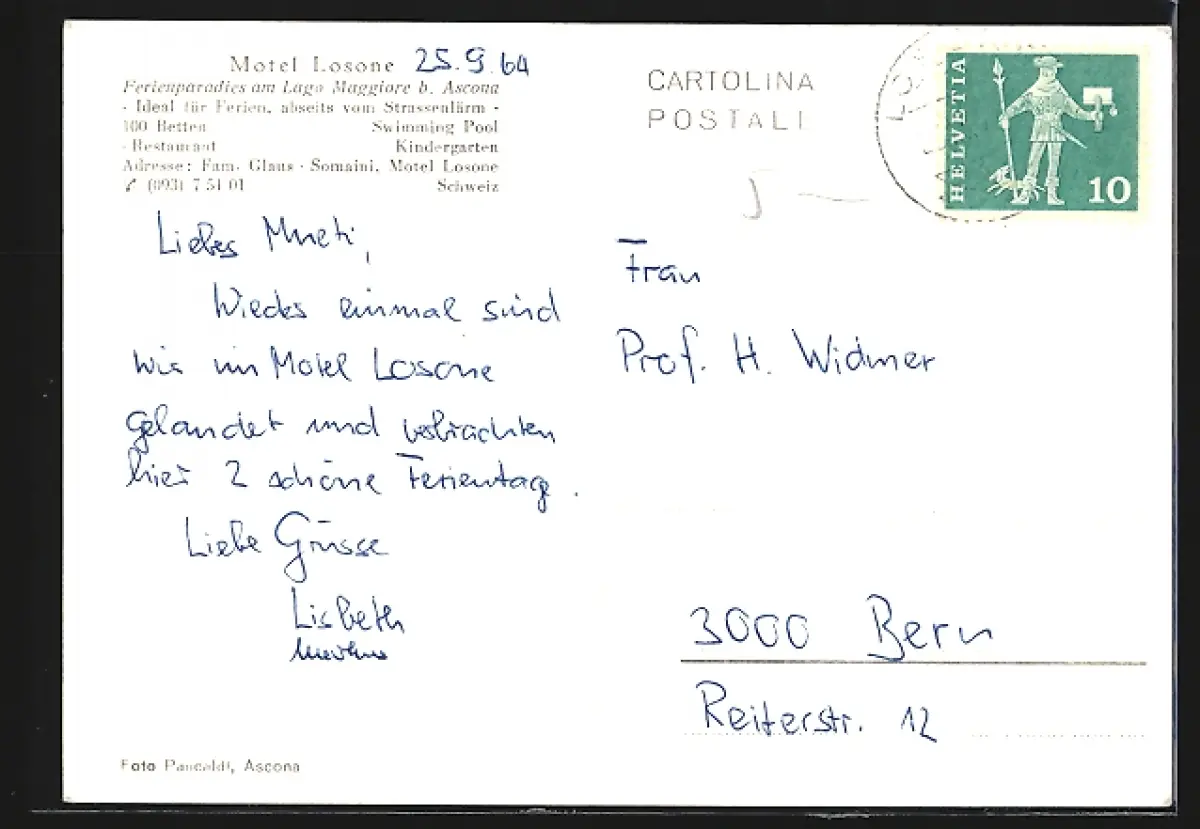 Motel Losone 25.9.64
Ferienparadies am Lago Maggiore b. Ascona
- Ideal für Ferien, abseits vom Strassenlärm -
100 Betten Swimming Pool
- Restaurant Kindergarten
Adresse: Fam. Glaus - Somaini, Motel Losone
(093) 7 51 01 Schweiz
CARTOLINA
POSTALI
HELVETIA
10
Liebes Mueti,
Wieder einmal sind
wir im Motel Losone
gelandet und verbrachten
hier 2 schöne Ferientage.
Liebe Grüsse
Lisbeth
Frau
Prof. H. Widmer
3000 Bern
Reiterstr. 12
Foto Pancaldi, Ascona